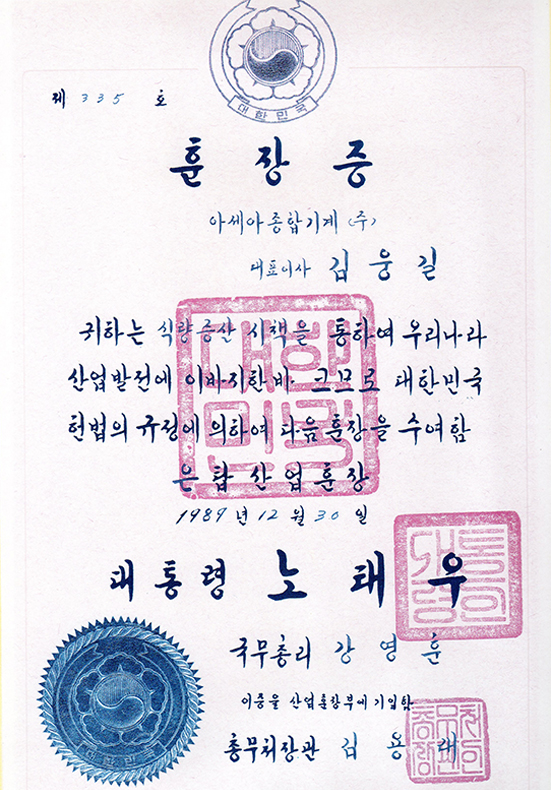 대한민국
제 335 호
훈장증
아세아종합기계 (주)
대표이사 김웅길
귀하는 식량증산 시책을 통하여 우리나라
산업발전에 이바지한바 크므로 대한민국
헌법의 규정에 의하여 다음 훈장을 수여함
은탑산업훈장
1989년 12월 30일
대통령 노태우
국무총리 강영훈
이증을 산업훈장부에 기입함
총무처장관 김용래
대한민국